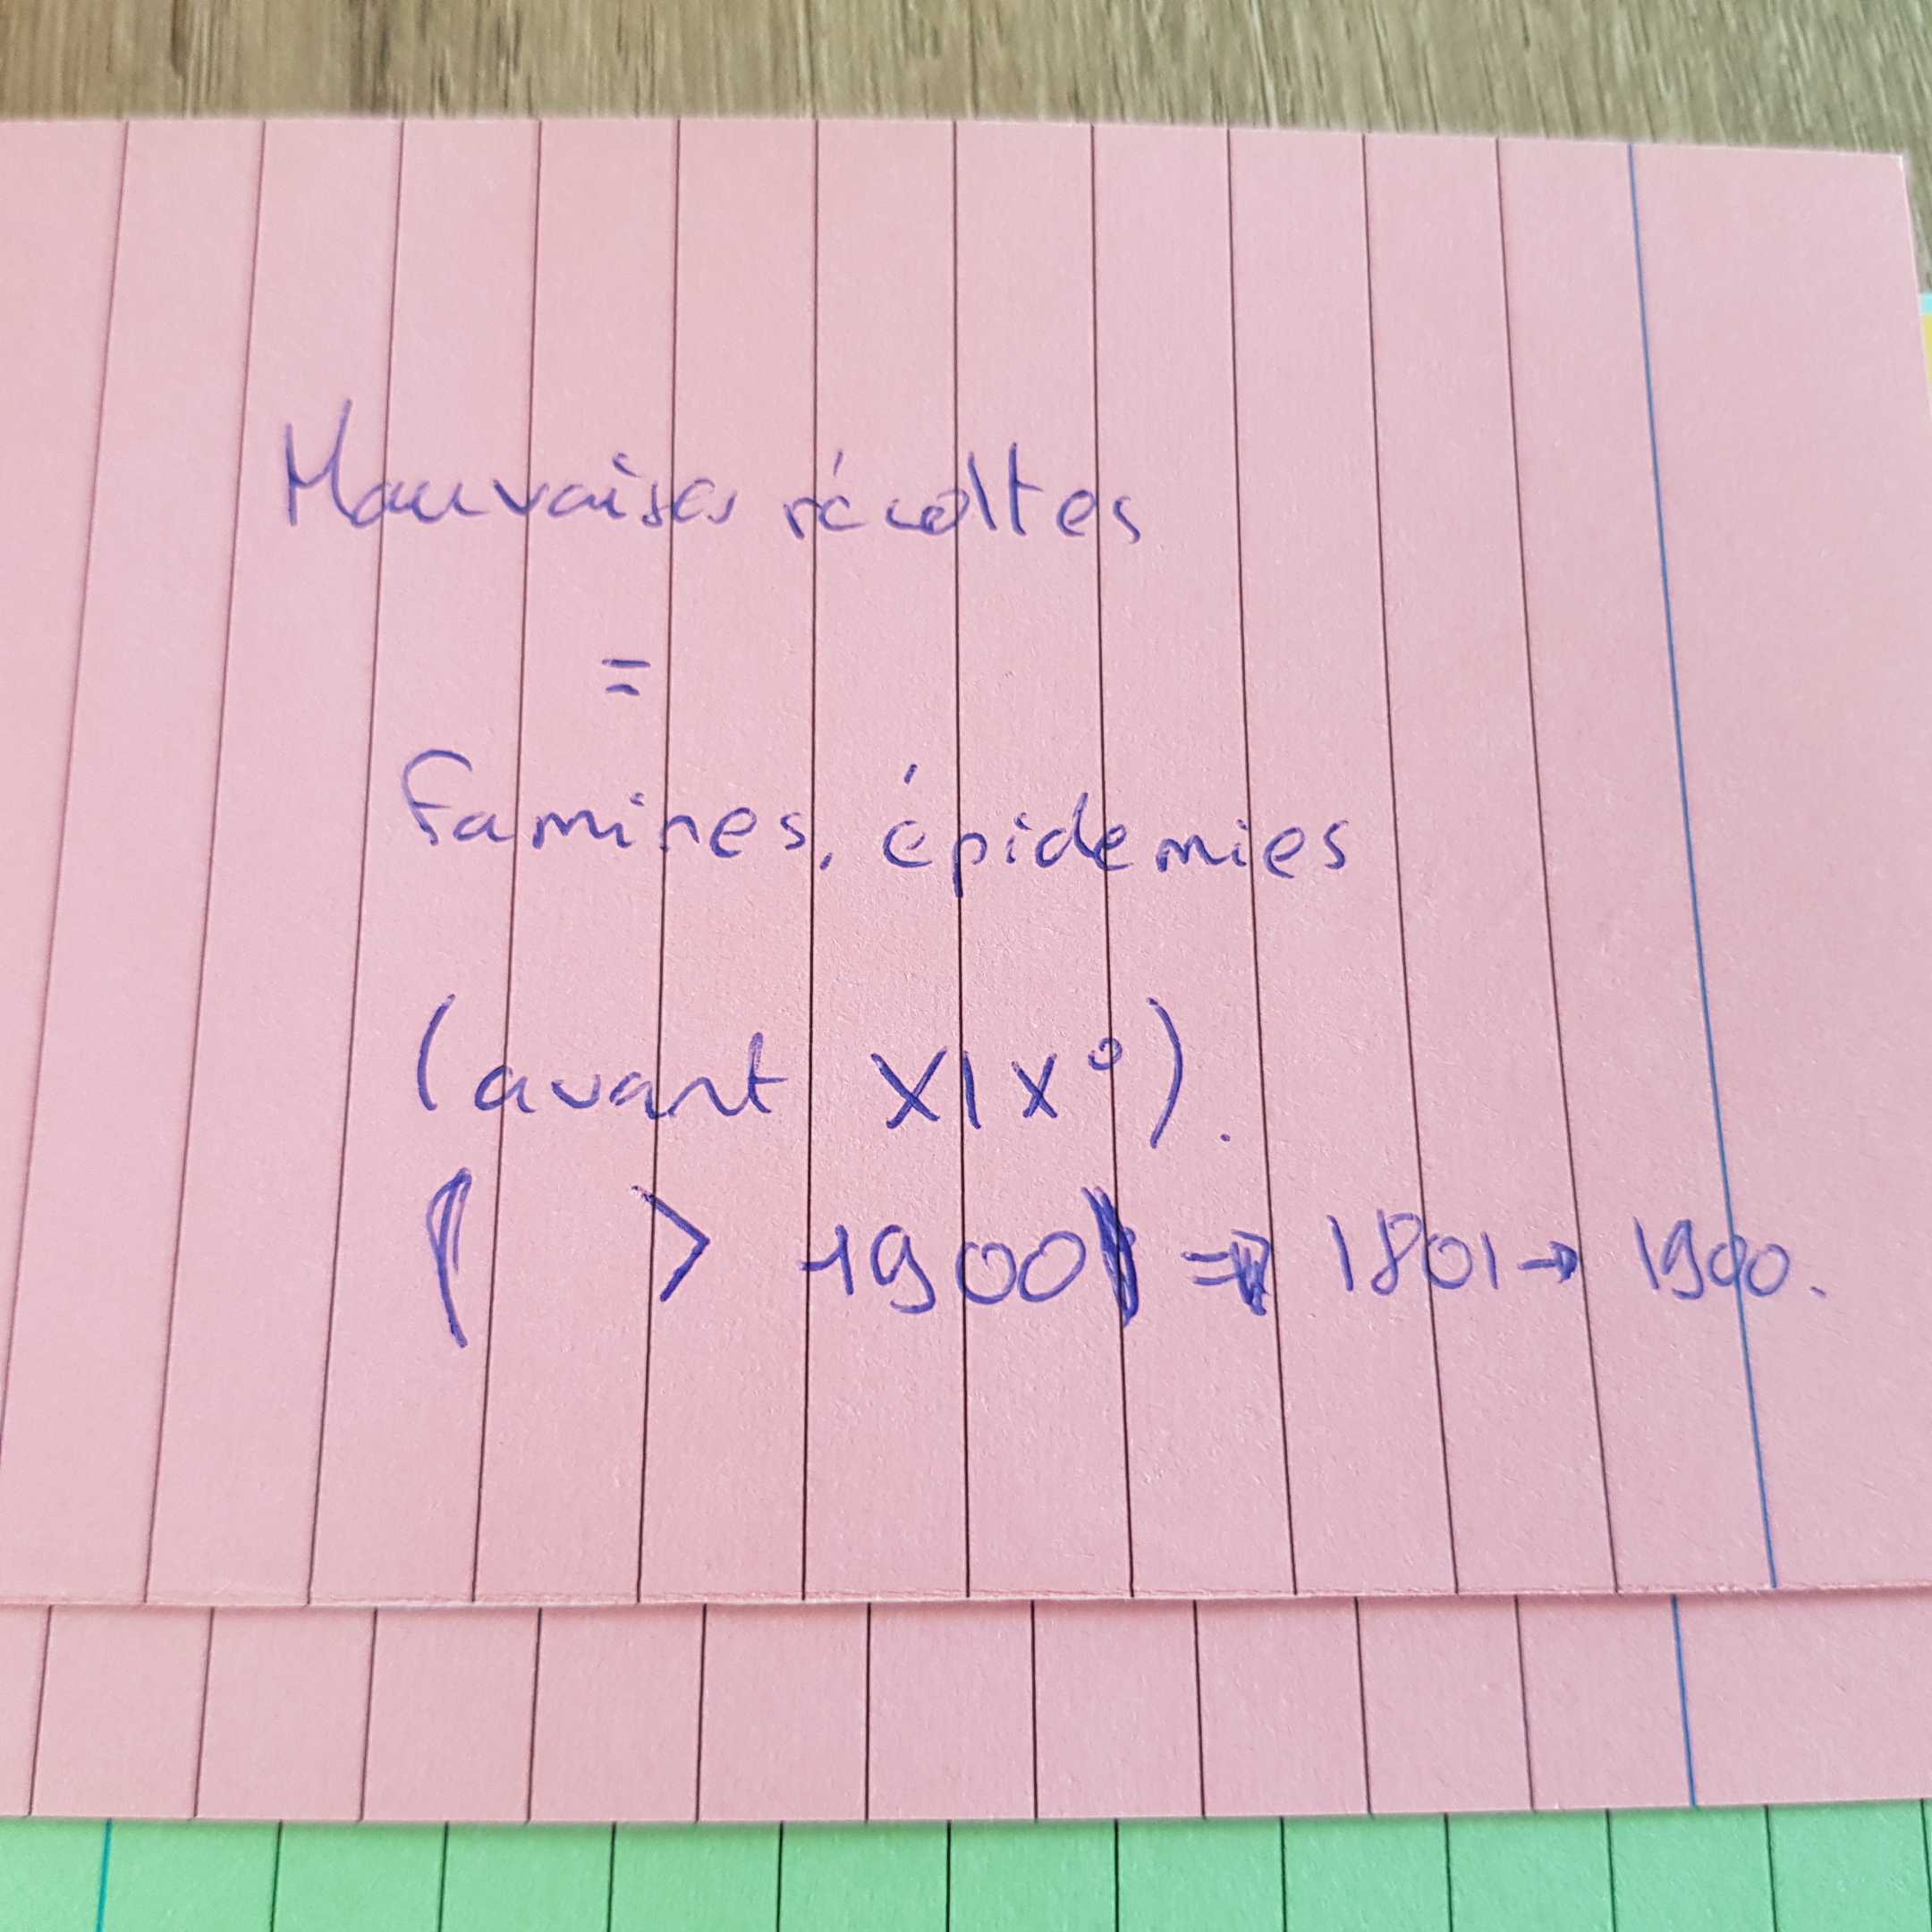 Mauvaises récoltes
=
Famines, épidemies
(avant XIX°).
> 1900 => 1801 → 1900.